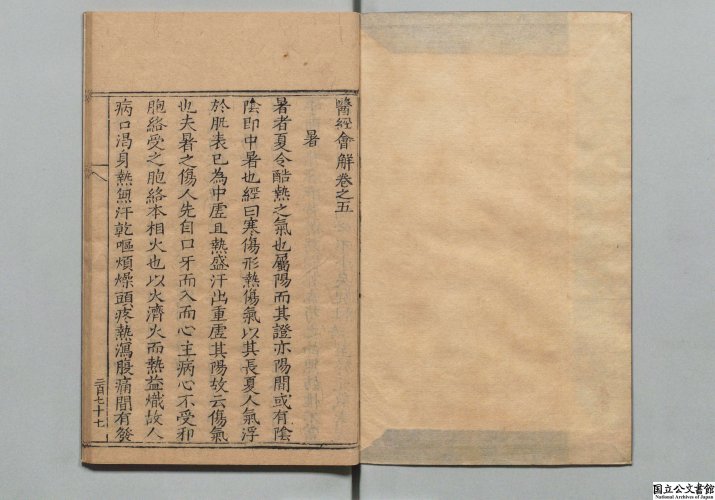 醫經會解卷之五
暑
暑者夏令酷熱之氣也屬陽而其證亦陽間或有陰
陰即中暑也經曰寒傷形熱傷氣以其長夏人氣浮
於肌表已為中虛且熱盛汗出重虛其陽故云傷氣
也夫暑之傷人先自口牙而入而心主病心不受邪
胞絡受之胞絡本相火也以火濟火而熱益熾故人
病口渴身熱無汗乾嘔煩燥頭疼熱瀉腹痛間有發
二百七十七
国立公文書館
National Archives of Japan